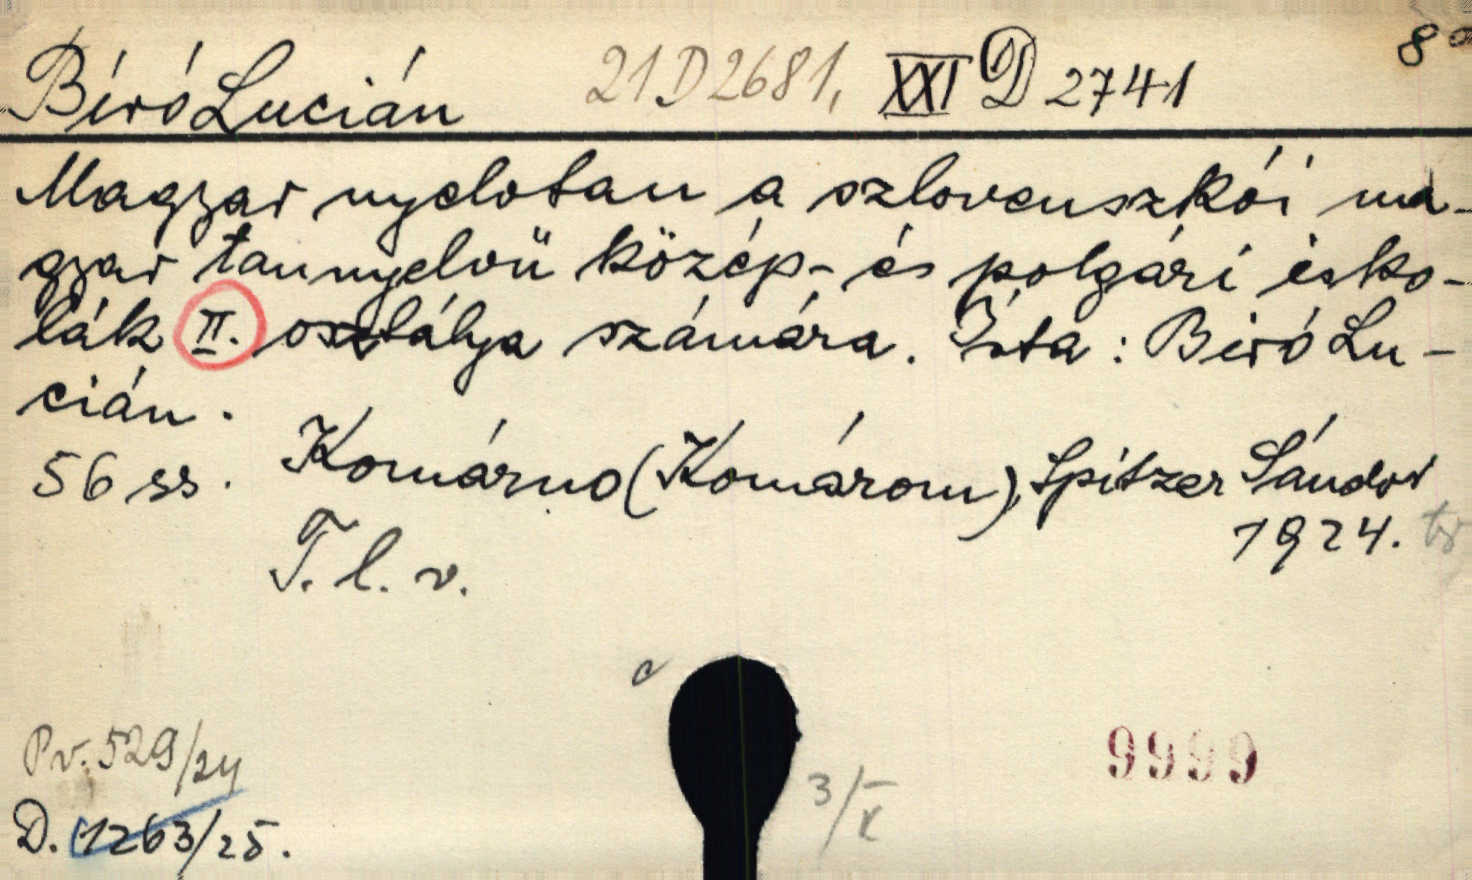 Bíró Lucián 21 D 2681, XXI D 2741 8°
Magyar nyelvtan a szlovenszkói ma-
gyar tannyelvü közép- és polgári isko-
lák II. osztálya számára. Irta: Biró Lu-
cián.
56 ss. Komárno (Komárom), Spitzer Sándor
1924.
T. l. v.
Pv. 529/24
3/X
9999
D. 1263/25.